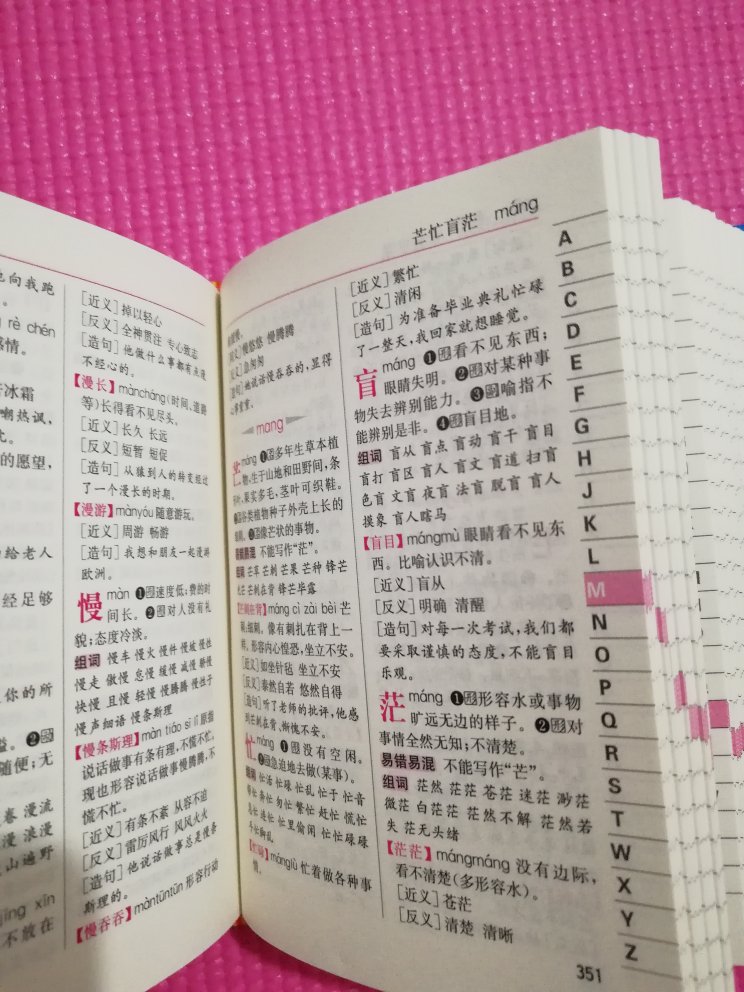 也向我跑
rè chén
感情。
冰霜
嘲热讽，
的愿望，
给老人
经足够
你的所
随便；无
漫流
浪漫
山遍野
xīn
不放在
[近义]掉以轻心
[反义]全神贯注 专心致志
[造句]他做什么事都有点漫
不经心的。
【漫长】màncháng(时间、道路
等)长得看不见尽头。
[近义]长久 长远
[反义]短暂 短促
[造句]从猿到人的转变经过
了一个漫长的时期。
【漫游】mànyóu 随意游玩。
[近义]周游 畅游
[造句]我想和朋友一起漫游
欧洲。
慢 màn ❶形速度低；费的时
间长。❷形对人没有礼
貌；态度冷淡。
组词 慢车 慢火 慢件 慢坡 慢性
慢走 傲慢 怠慢 缓慢 减慢 简慢
快慢 且慢 轻慢 慢腾腾 慢性子
慢声细语 慢条斯理
【慢条斯理】màn tiáo sī lǐ 原指
说话做事有条有理，不慌不忙。
现也形容说话做事慢腾腾，不
慌不忙。
[近义]有条不紊 从容不迫
[反义]雷厉风行 风风火火
[造句]他说话做事总是慢条
斯理的。
【慢吞吞】màntūntūn 形容行动
芒忙盲茫 máng
慢悠悠 慢腾腾
急匆匆
他说话慢吞吞的，显得
mang
芒 máng ❶名多年生草本植
物，生于山地和田野间，条
叶，果实多毛，茎叶可织鞋。
谷类植物种子外壳上长的
像芒状的事物。
易错易混 不能写作“茫”。
组词 芒草 芒刺 芒果 芒种 锋芒
芒刺在背 锋芒毕露
【芒刺在背】máng cì zài bèi 芒
刺，细刺。像有刺扎在背上一
样。形容内心惶恐，坐立不安。
[近义]如坐针毡 坐立不安
[反义]泰然自若 悠然自得
[造句]听了老师的批评，他感
到芒刺在背，惭愧不安。
忙 máng ❶形没有空闲。
急迫地去做(某事)。
组词 忙活 忙碌 忙乱 忙于 忙音
帮忙 奔忙 匆忙 繁忙 赶忙 慌忙
急忙 连忙 忙里偷闲 忙忙碌碌
手忙脚乱
【忙碌】mánglù 忙着做各种事
情。
[近义]繁忙
[反义]清闲
[造句]为准备毕业典礼忙碌
了一整天，我回家就想睡觉。
盲 máng ❶形看不见东西；
眼睛失明。❷形对某种事
物失去辨别能力。❸形喻指不
能辨别是非。❹副盲目地。
组词 盲从 盲点 盲动 盲干 盲目
盲打 盲区 盲人 盲文 盲道 扫盲
色盲 文盲 夜盲 法盲 脱盲 盲人
摸象 盲人瞎马
【盲目】mángmù 眼睛看不见东
西。比喻认识不清。
[近义]盲从
[反义]明确 清醒
[造句]对每一次考试，我们都
要采取谨慎的态度，不能盲目
乐观。
茫 máng ❶形形容水或事物
旷远无边的样子。❷形对
事情全然无知；不清楚。
易错易混 不能写作“芒”。
组词 茫然 茫茫 苍茫 迷茫 渺茫
微茫 白茫茫 茫然不解 茫然若
失 茫无头绪
【茫茫】mángmáng 没有边际，
看不清楚(多形容水)。
[近义]苍茫
[反义]清楚 清晰
351
A
B
C
D
E
F
G
H
J
K
L
M
N
O
P
Q
R
S
T
W
X
Y
Z